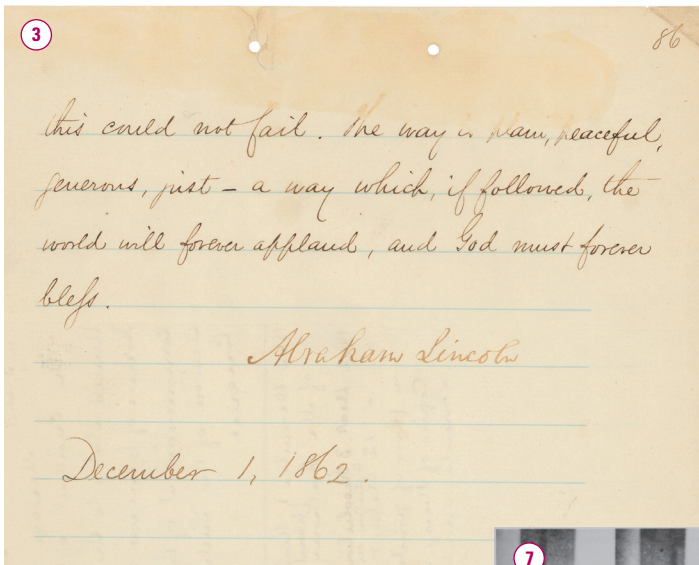 3
86
this could not fail. The way is plain, peaceful,
generous, just – a way which, if followed, the
world will forever applaud, and God must forever
bless.
Abraham Lincoln
December 1, 1862.
7